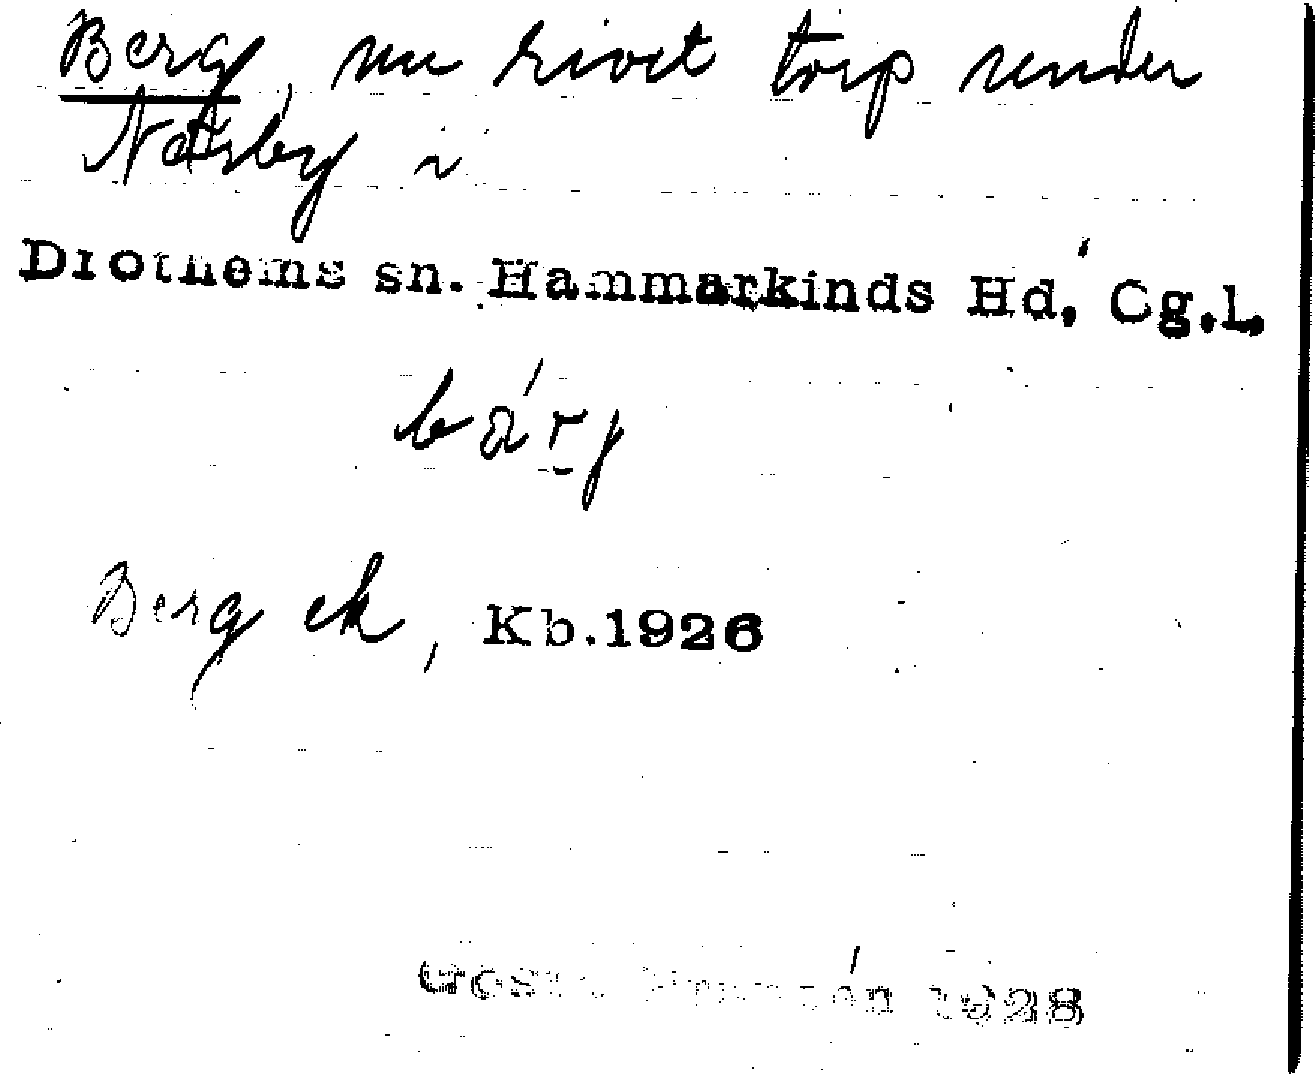 Berg, nu rivet torp under
Närby i
Drothems sn. Hammarkinds Hd, Ög.l.
bárj
Berg ek, Kb.1926
Gösta 1928